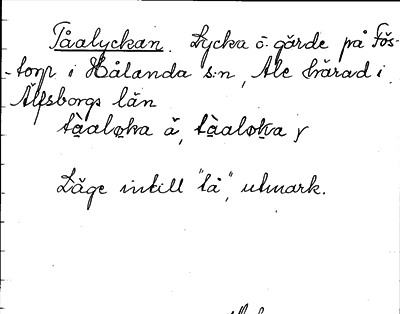 Tåalyckan. Lycka o. gärde på Fös-
-torp i Hålanda s:n, Ale härad i
Älfsborgs län
Läge intill "tå", utmark.